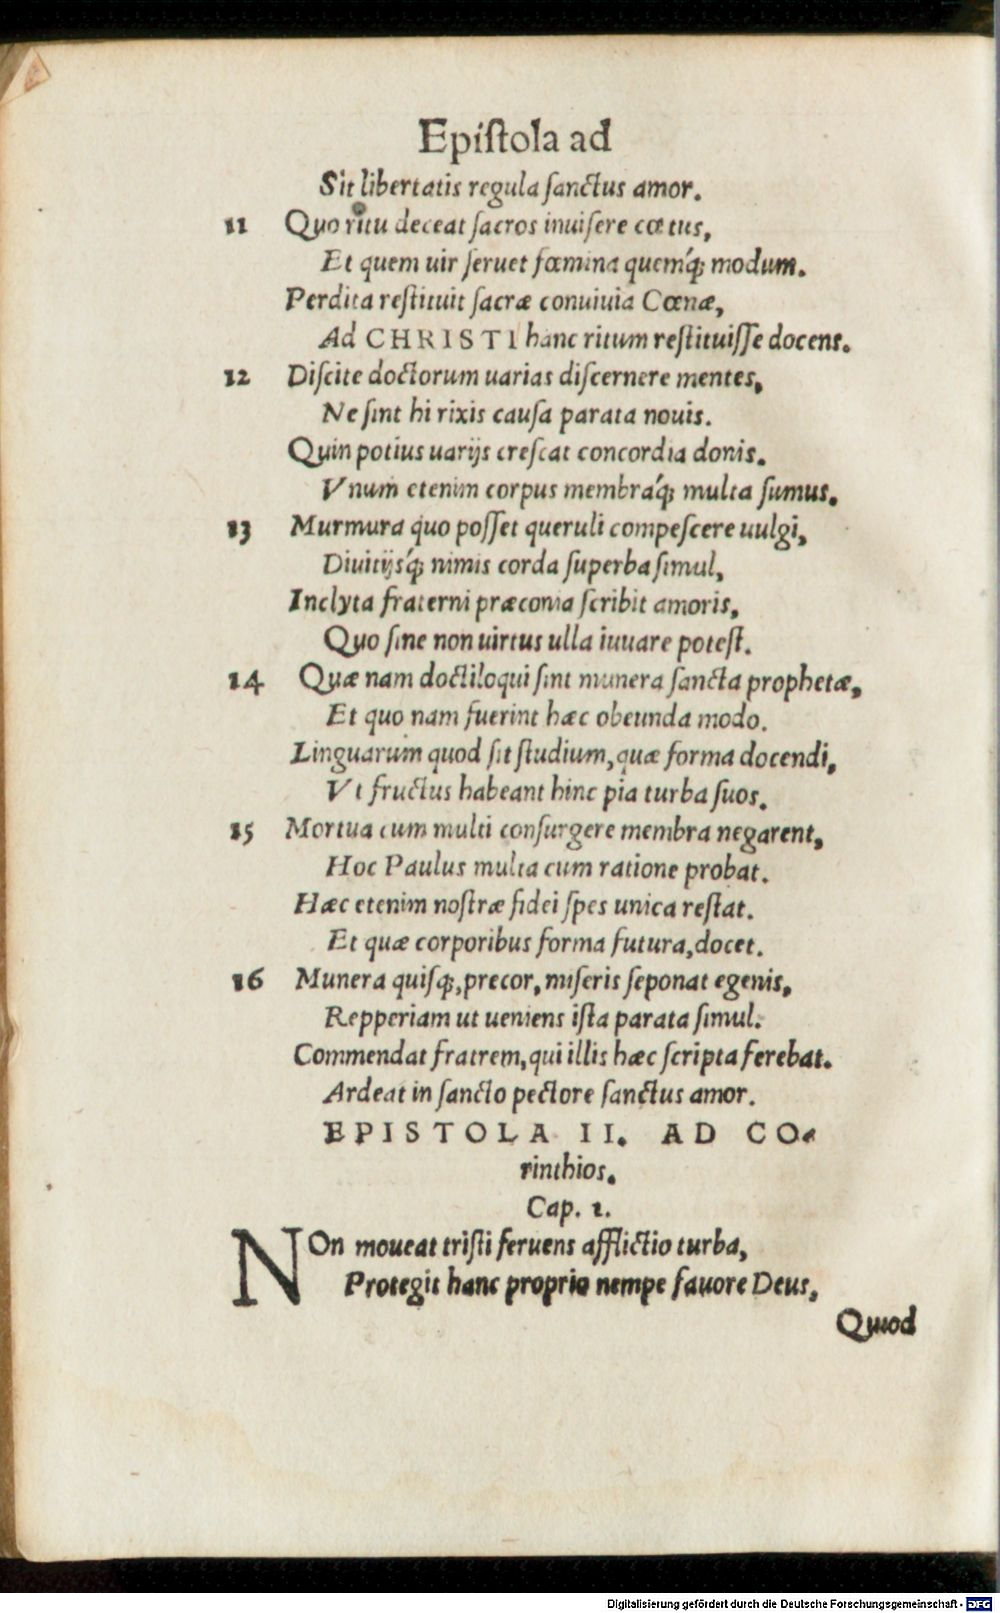 Epiſtola ad
Sit libertatis regula ſanctus amor.
11 Quo ritu deceat ſacros inuiſere cœtus,
Et quem uir ſeruet fœmina quemq́; modum.
Perdita reſtituit ſacræ conuiuia Cœnæ,
Ad CHRISTI hanc ritum reſtituiſſe docens.
12 Diſcite doctorum uarias diſcernere mentes,
Ne ſint hi rixis cauſa parata nouis.
Quin potius uarijs creſcat concordia donis.
Vnum etenim corpus membraq́; multa ſumus.
13 Murmura quo poſſet queruli compeſcere uulgi,
Diuitijsq́; nimis corda ſuperba ſimul,
Inclyta fraterni præconia ſcribit amoris,
Quo ſine non uirtus ulla iuuare poteſt.
14 Quæ nam doctiloqui ſint munera ſancta prophetæ,
Et quo nam fuerint hæc obeunda modo.
Linguarum quod ſit ſtudium, quæ forma docendi,
Vt fructus habeant hinc pia turba ſuos.
15 Mortua cum multi conſurgere membra negarent,
Hoc Paulus multa cum ratione probat.
Hæc etenim noſtræ fidei ſpes unica reſtat.
Et quæ corporibus forma futura, docet.
16 Munera quiſq;, precor, miſeris ſeponat egenis,
Repperiam ut ueniens iſta parata ſimul.
Commendat fratrem, qui illis hæc ſcripta ferebat.
Ardeat in ſancto pectore ſanctus amor.
EPISTOLA II. AD CO-
rinthios.
Cap. 1.
NOn moueat triſti feruens afflictio turba,
Protegit hanc proprio nempe fauore Deus,
Quod
Digitalisierung gefördert durch die Deutsche Forschungsgemeinschaft - DFG